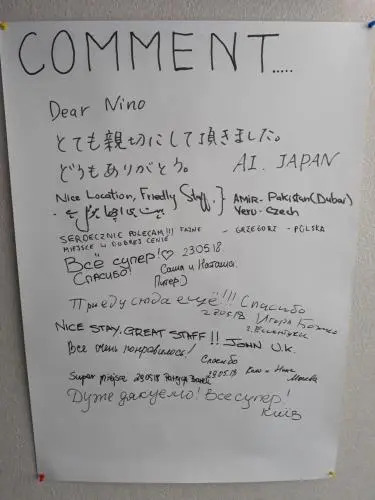 COMMENT.....
Dear Nino
とても親切にして頂きました。
どうもありがとう。 AI. JAPAN
Nice Location, Friedly Staff. } Amir-Pakistan(Dubai)
Veru-Czech
SERDECZNIE POLECAM!!! FAJNE - GRZEGORZ - POLSKA
MIEJSCE W DOBREJ CENIE
Всё супер!♡ 23.05.18
Спасибо! Саша и Наташа.
(Питер)
Приеду сюда ещё!!! Спасибо
27.05.18 Игорь
г. Ессентуки
NICE STAY. GREAT STAFF!! JOHN U.K.
Все очень понравилось! Спасибо
Super miejsce 29.05.18 29.05.18
Москва
Дуже дякуємо! Все супер!
Київ